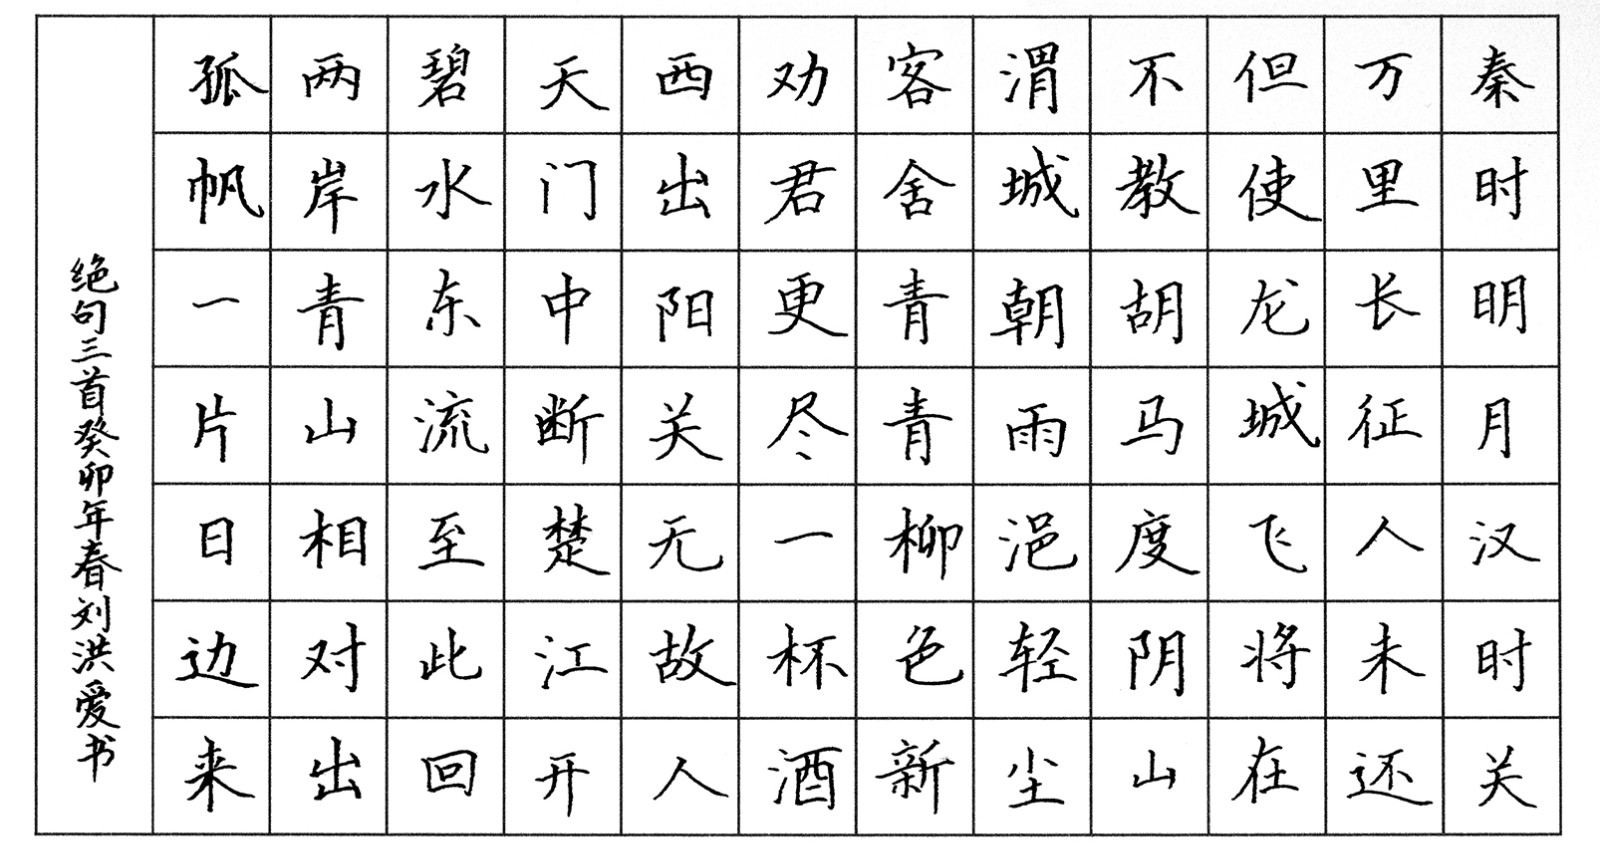 秦时明月汉时关
万里长征人未还
但使龙城飞将在
不教胡马度阴山
渭城朝雨浥轻尘
客舍青青柳色新
劝君更尽一杯酒
西出阳关无故人
天门中断楚江开
碧水东流至此回
两岸青山相对出
孤帆一片日边来
绝句三首癸卯年春刘洪爱书